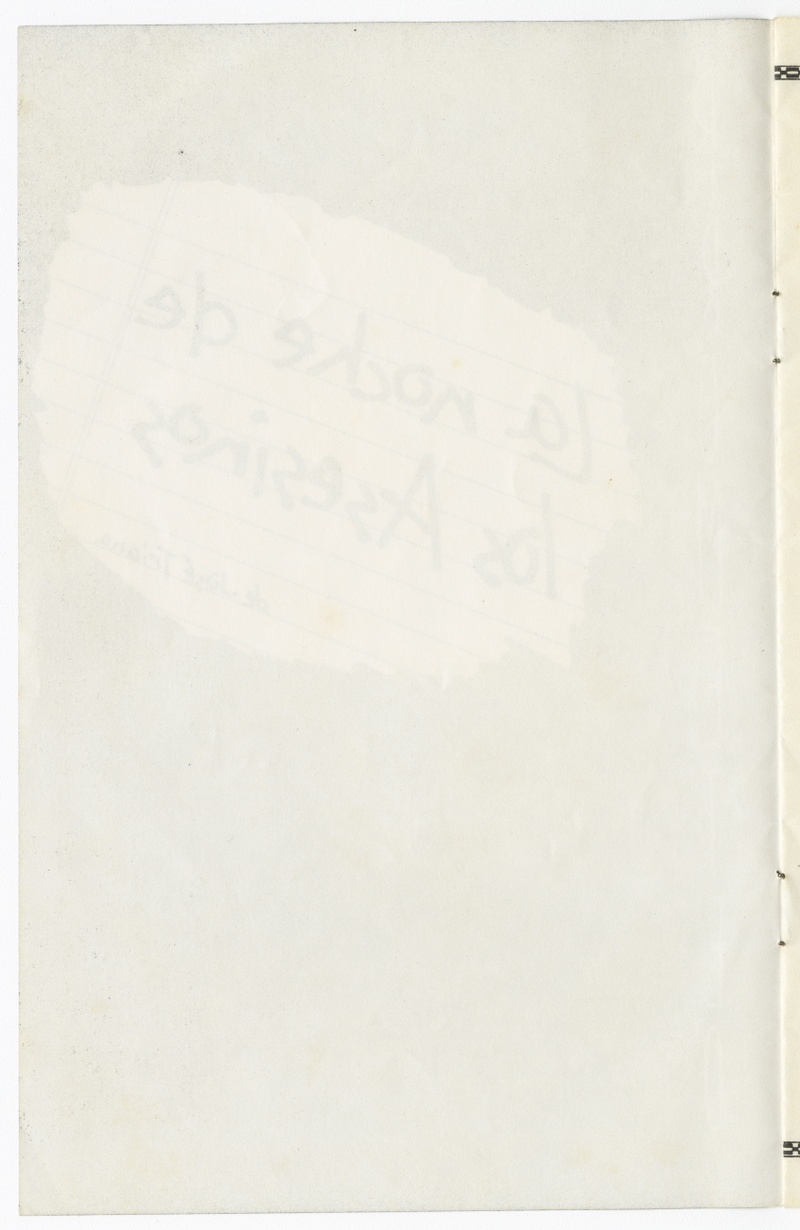 La noche de
los Asesinos
de José Triana